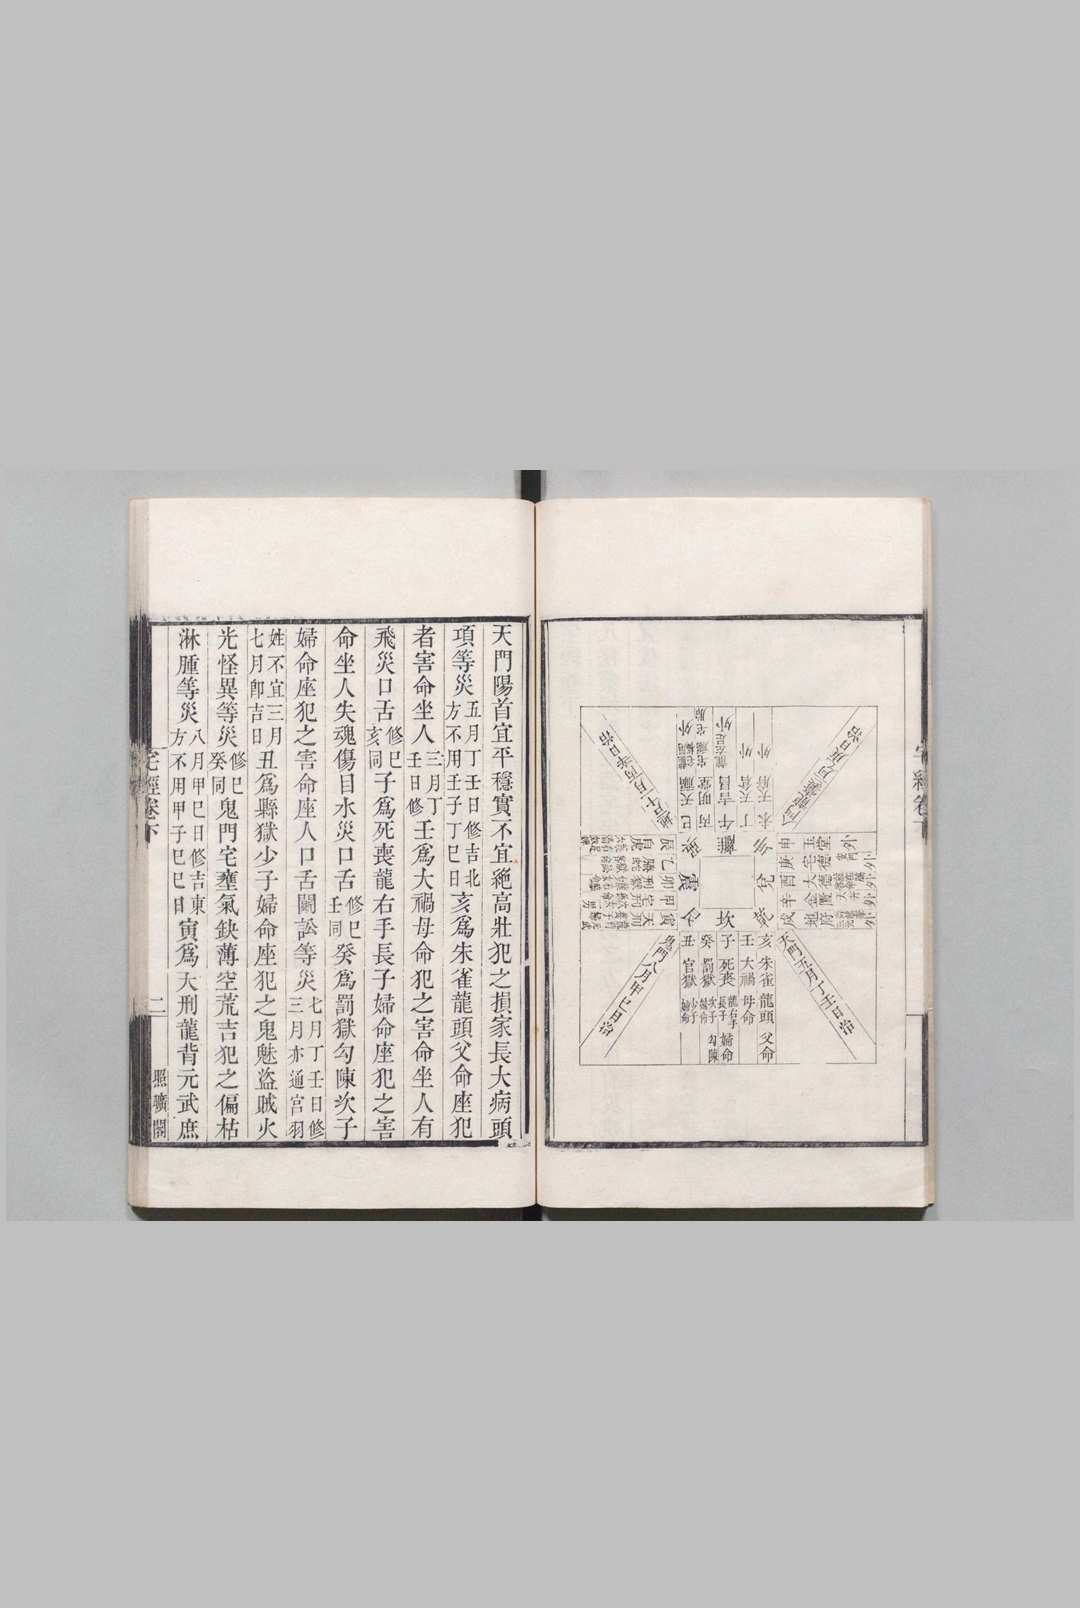 宅經卷下
天門五月丁壬日治
亥朱雀龍頭父命
壬大禍母命
子死喪龍右手長子婦命
癸罰獄勾陳次子婦命
丑官獄少子婦命
鬼門八月甲巳日治
坎
震
離
巳天福
丙明堂
午吉昌
丁天倉
未天府
申玉堂
庚宅德
酉大德
辛金匱
戌地府
天門陽首宜平穩實不宜絕高壯犯之損家長大病頭
項等災五月丁壬日修吉北方不用壬子丁巳日亥爲朱雀龍頭父命座犯
者害命坐人三月丁壬日修壬爲大禍母命犯之害命坐人有
飛災口舌修巳亥同子爲死喪龍右手長子婦命座犯之害
命坐人失魂傷目水災口舌修巳壬同癸爲罰獄勾陳次子
婦命座犯之害命座人口舌鬭訟等災七月丁壬日修三月亦通宫羽
姓不宜三月七月卽吉日丑爲縣獄少子婦命座犯之鬼魅盜賊火
光怪異等災修巳癸同鬼門宅壅氣缺薄空荒吉犯之偏枯
淋腫等災八月甲巳日修吉東方不用甲子巳巳日寅爲天刑龍背元武庶
宅經卷下
二
照曠閣